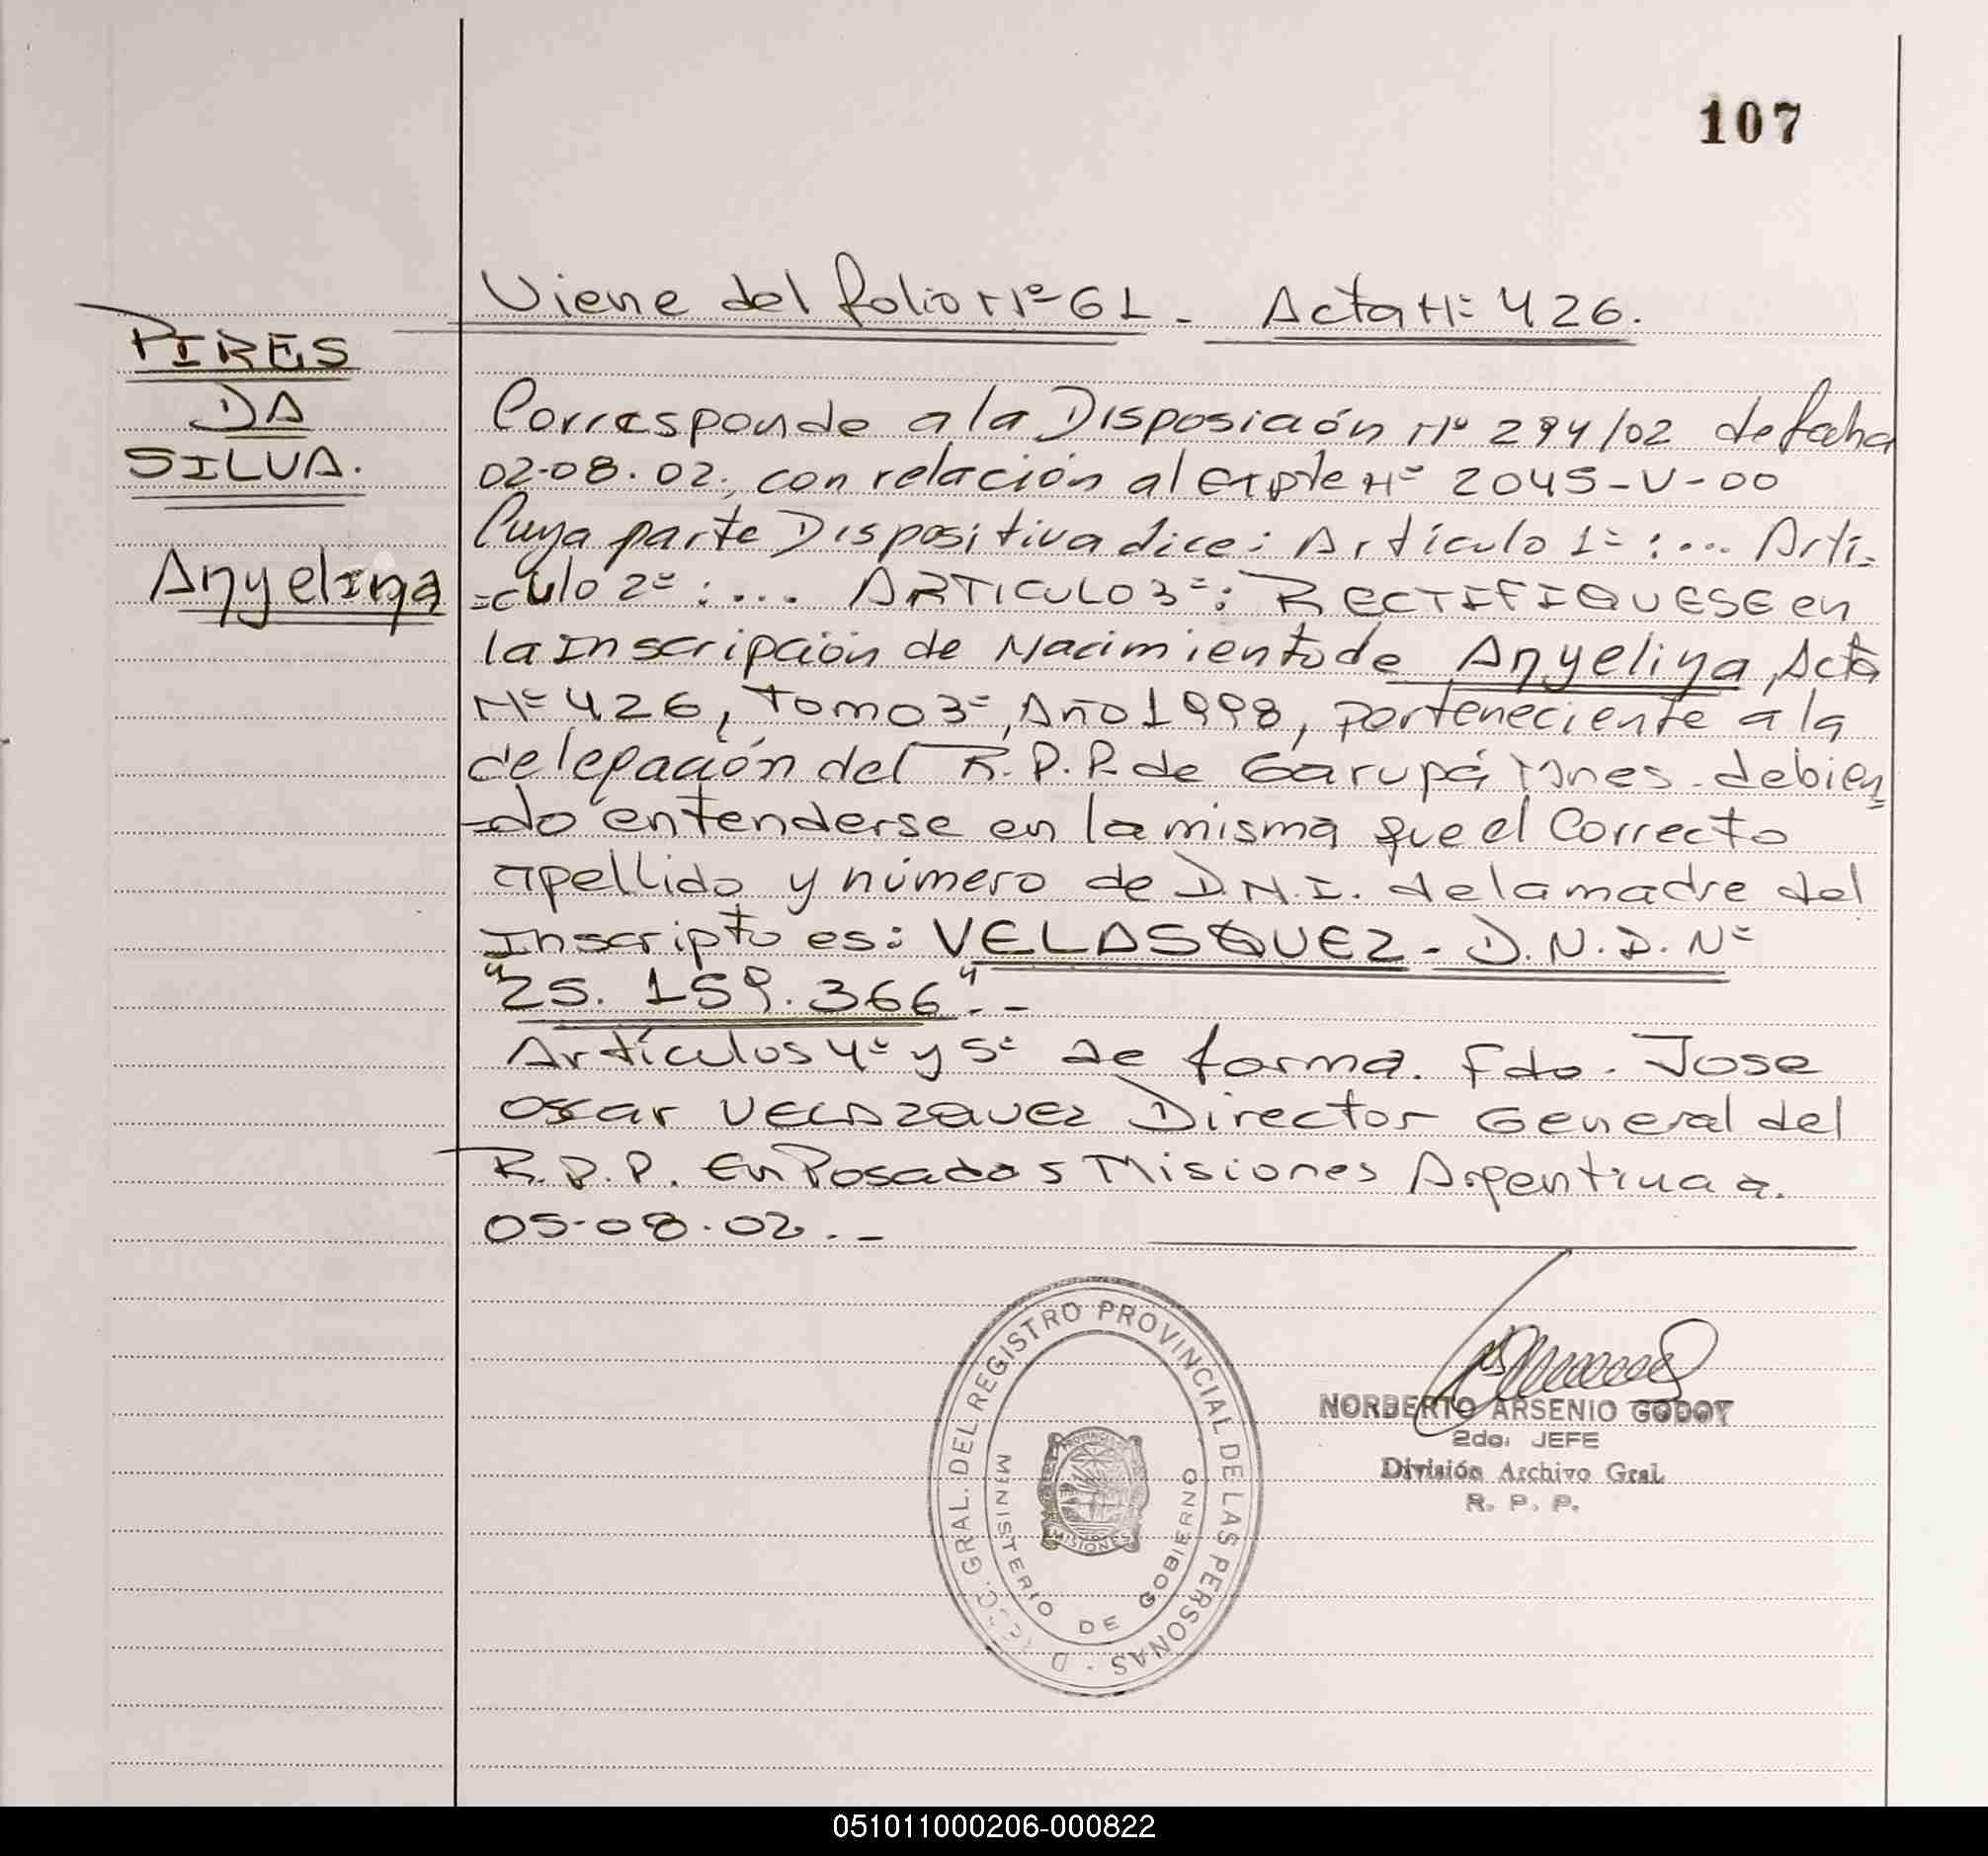 107
Viene del folio Nº 61 - Acta Nº 426.
PIRES
DA
SILVA.
Anyelina
Corresponde a la Disposición Nº 294/02 de fecha
02-08.02., con relación al Expte Nº 2045-V-00
Cuya parte Dispositiva dice: Artículo 1º:... Artí-
=culo 2º:... ARTICULO 3º: RECTIFIQUESE en
la Inscripción de Nacimiento de Anyelina, Acta
Nº 426, Tomo 3º, Año 1998, perteneciente a la
delegación del R.P.P. de Garupá Mnes. debien
-do entenderse en la misma que el Correcto
apellido y número de D.N.I. de la madre del
Inscripto es: VELASQUEZ - D.N.I. Nº
"25.159.366".-
Artículos 4º y 5º de forma. Fdo. Jose
Oscar VELAZQUEZ Director General del
R.P.P. En Posadas Misiones Argentina a.
05-08.02.-
DIREC. GRAL. DEL REGISTRO PROVINCIAL DE LAS PERSONAS -
MINISTERIO DE GOBIERNO
PROVINCIA
MISIONES
NORBERTO ARSENIO GODOY
2do. JEFE
División Archivo Gral.
R. P. P.
051011000206-000822